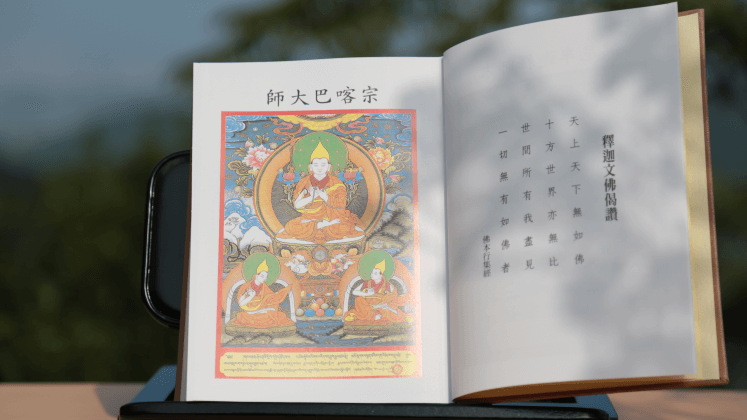 宗喀巴大師
釋迦文佛偈讚
天上天下無如佛
十方世界亦無比
世間所有我盡見
一切無有如佛者
佛本行集經